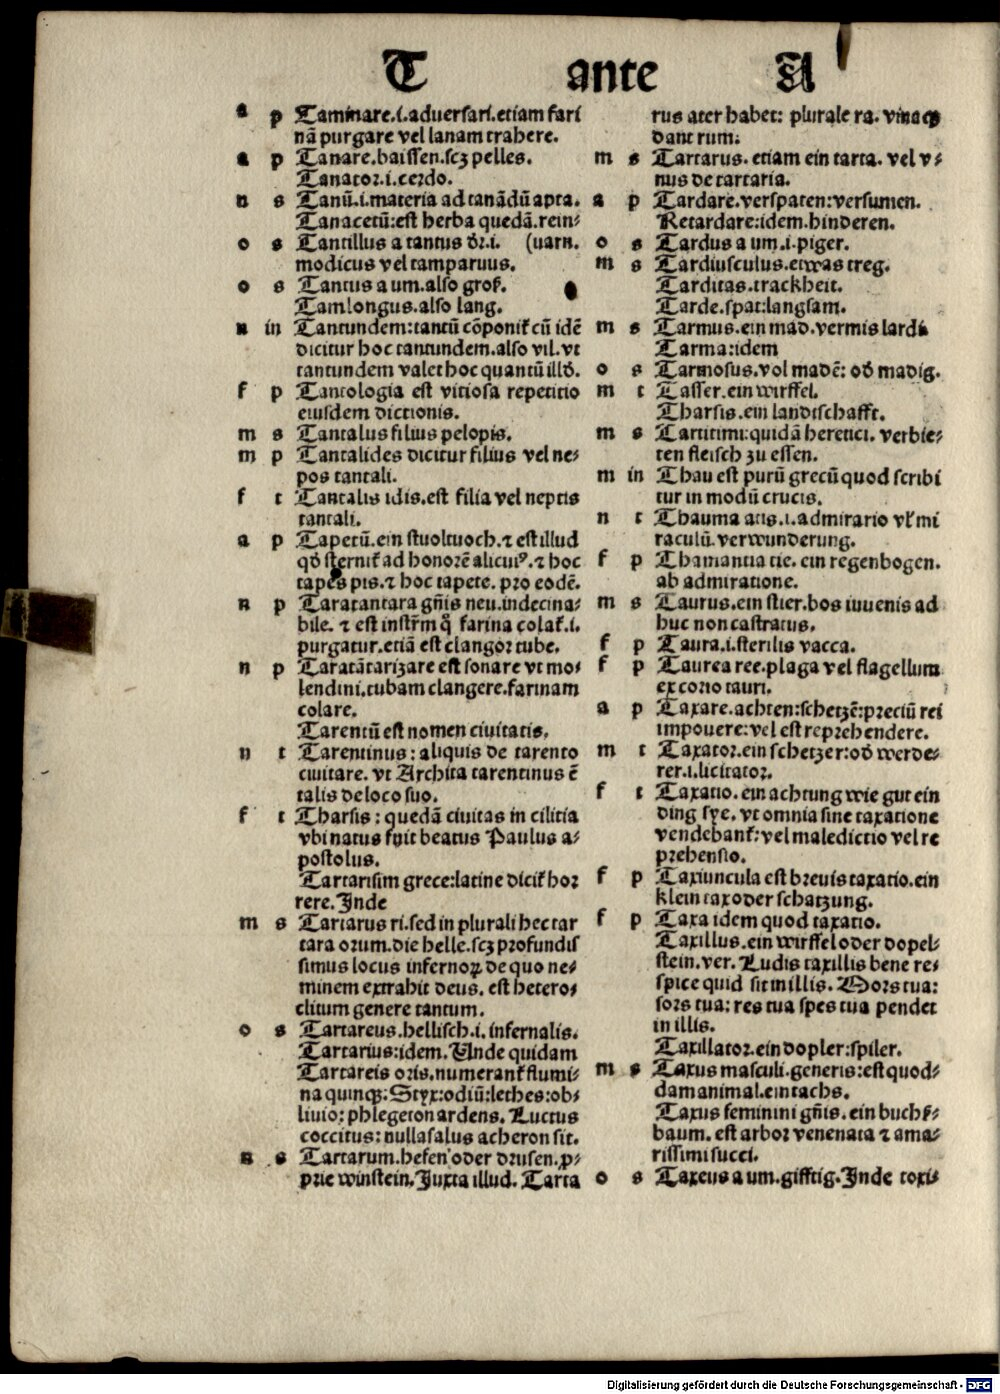 T ante A
a p Taminare.i.aduersari.etiam fari
nā purgare vel lanam trahere.
a p Tanare.baissen.scꝫ pelles.
Tanator.i.cerdo.
n s Tanū.i.materia ad tanādū apta.
Tanacetū:est herba quedā.rein⸗
o s Tantillus a tantus dr̄.i. (uarn.
modicus vel tamparuus.
o s Tantus a um.also groß.
Tamlongus.also lang.
n in Tantundem:tantū cōponit̄ cū idē
dicitur hoc tantundem.also vil.vt
tantundem valet hoc quantū illđ.
f p Tantologia est vitiosa repetitio
eiusdem dictionis.
m s Tantalus filius pelopis.
m p Tantalides dicitur filius vel ne⸗
pos tantali.
f t Tantalis idis.est filia vel neptis
tantali.
a p Tapetū.ein stuoltuoch.⁊ est illud
qđ sternit̄ ad honorē alicuiꝰ.⁊ hoc
tapes pis.⁊ hoc tapete. pro eodē.
n p Taratantara gn̄is neu.indecina⸗
bile. ⁊ est instr̄m q̄ farina colat̄.i.
purgatur.etiā est clangor tube.
n p Taratātarizare est sonare vt mo⸗
lendini.tubam clangere.farinam
colare.
Tarentū est nomen ciuitatis.
n t Tarentinus: aliquis de tarento
ciuitate. vt Archita tarentinus ē
talis de loco suo.
f t Tharsis: quedā ciuitas in cilitia
vbi natus fuit beatus Paulus a⸗
postolus.
Tartarisim grece:latine dicit̄ hor
rere.Inde
m s Tartarus ri.sed in plurali hec tar
tara orum.die helle.scꝫ profundis
simus locus infernoꝝ de quo ne⸗
minem extrahit deus. est hetero⸗
clitum genere tantum.
o s Tartareus.hellisch.i. infernalis.
Tartarius:idem. Unde quidam
Tartareis oris.numerant̄ flumi⸗
na quinqꝫ:Styx:odiū:lethes:ob⸗
liuio: phlegeton ardens. Luctus
coccitus: nulla salus acheron sit.
n s Tartarum.hefen oder drusen.ꝓ⸗
prie winstein.Juxta illud. Tarta
rus ater habet: plurale ra. vinaqꝫ
dant rum:
m s Tartarus. etiam ein tarta. vel v⸗
nus de tartaria.
a p Tardare.verspaten:versumen.
Retardare:idem.hinderen.
o s Tardus a um.i.piger.
m s Tardiusculus.etwas treg.
Tarditas.trackheit.
Tarde.spat:langsam.
m s Tarmus.ein mad.vermis lardi
Tarma:idem
o s Tarmosus.vol madē: ođ madig.
m t Tasser.ein wirffel.
Tharsis.ein landtschafft.
m s Tartitimi:quidā heretici. verbie⸗
ten fleisch zu essen.
m in Thau est purū grecū quod scribi
tur in modū crucis.
n t Thauma atis.i.admiratio vl̄ mi
raculū.verwunderung.
f p Thamantia tie. ein regenbogen.
ab admiratione.
m s Taurus.ein stier.bos iuuenis ad
huc non castratus.
f p Taura.i.sterilis vacca.
f p Taurea ree.plaga vel flagellum
ex corio tauri.
a p Taxare.achten:schetzē:preciū rei
impouere:vel est reprehendere.
m t Taxator.ein schetzer:ođ werde⸗
rer.i.licitator.
f t Taxatio. ein achtung wie gut ein
ding sye. vt omnia sine taxatione
vendebant̄:vel maledictio vel re
prehensio.
f p Taxiuncula est breuis taxatio.ein
klein tax oder schatzung.
f p Taxa idem quod taxatio.
Taxillus.ein wirffel oder dopel⸗
stein.ver. Ludis taxillis bene re⸗
spice quid sit in illis. Mors tua:
sors tua: res tua spes tua pendet
in illis.
Taxillator.ein dopler:spiler.
m s Taxus masculi.generis:est quod⸗
dam animal.ein tachs.
Taxus feminini gn̄is. ein buchß⸗
baum. est arbor venenata ⁊ ama⸗
rissimi succi.
o s Taxeus a um.gifftig.Inde toxi⸗
Digitalisierung gefördert durch die Deutsche Forschungsgemeinschaft - DFG